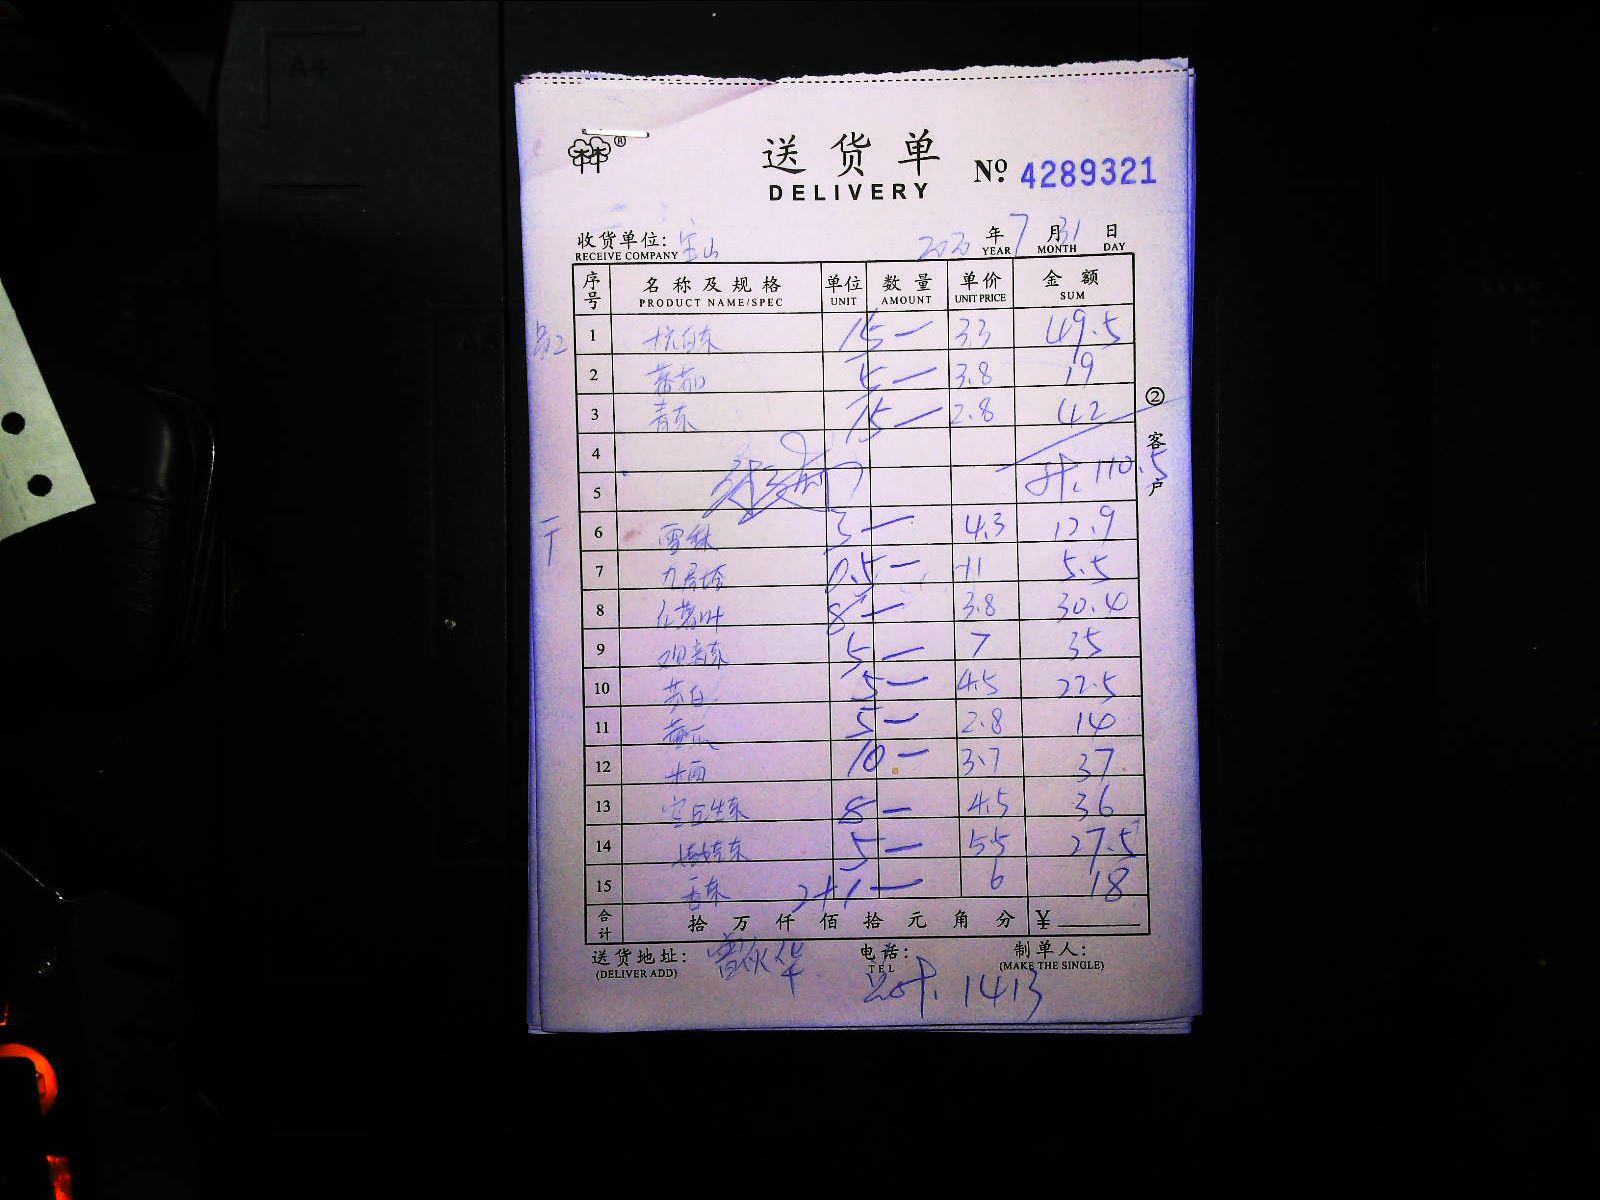 送货单
DELIVERY
№ 4289321
收货单位: 宝山 2020 年 7 月 31 日
RECEIVE COMPANY YEAR MONTH DAY
序号 名称及规格 单位 数量 单价 金额
PRODUCT NAME/SPEC UNIT AMOUNT UNIT PRICE SUM
1 杭白东 15 — 3.3 49.5
2 蕃茄 5 — 3.8 19
3 青东 15 — 2.8 42
4
5 计. 110.5
6 雪妹 3 — 4.3 12.9
7 九层塔 0.5 — 11 5.5
8 8 — 3.8 30.4
9 观音东 5 — 7 35
10 茭白 5 — 4.5 22.5
11 黄瓜 5 — 2.8 14
12 10 — 3.7 37
13 8 — 4.5 36
14 5 — 5.5 27.5
15 香东 2+1 — 6 18
合计 拾 万 仟 佰 拾 元 角 分 ¥
送货地址: 电话: 制单人:
(DELIVER ADD) TEL (MAKE THE SINGLE)
1413
② 客户
A4